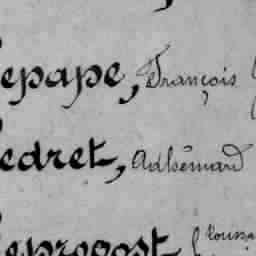 epape, François
edret, Adhémard
eprovost